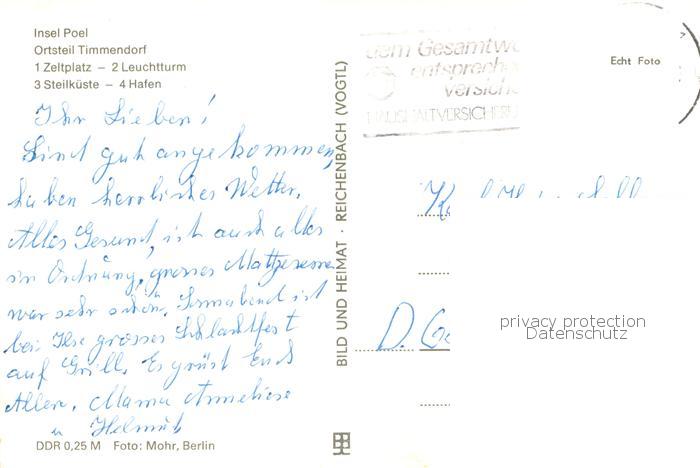 Insel Poel
Ortsteil Timmendorf
1 Zeltplatz – 2 Leuchtturm
3 Steilküste – 4 Hafen
Ihr Lieben!
Sind gut angekommen,
haben herrliches Wetter.
Alles Gesund, ist auch alles
in Ordnung, grosses
war sehr schön. Sonnabend ist
bei Ilse grosses Schlachtfest
auf Grill. Es grüst Euch
Allen. Mama Anneliese
u Helmut
DDR 0,25 M Foto: Mohr, Berlin
BILD UND HEIMAT · REICHENBACH (VOGTL)
dem Gesamtwe
entspreche
versiche
HAUSHALTVERSICHERU
Echt Foto
D.
privacy protection
Datenschutz